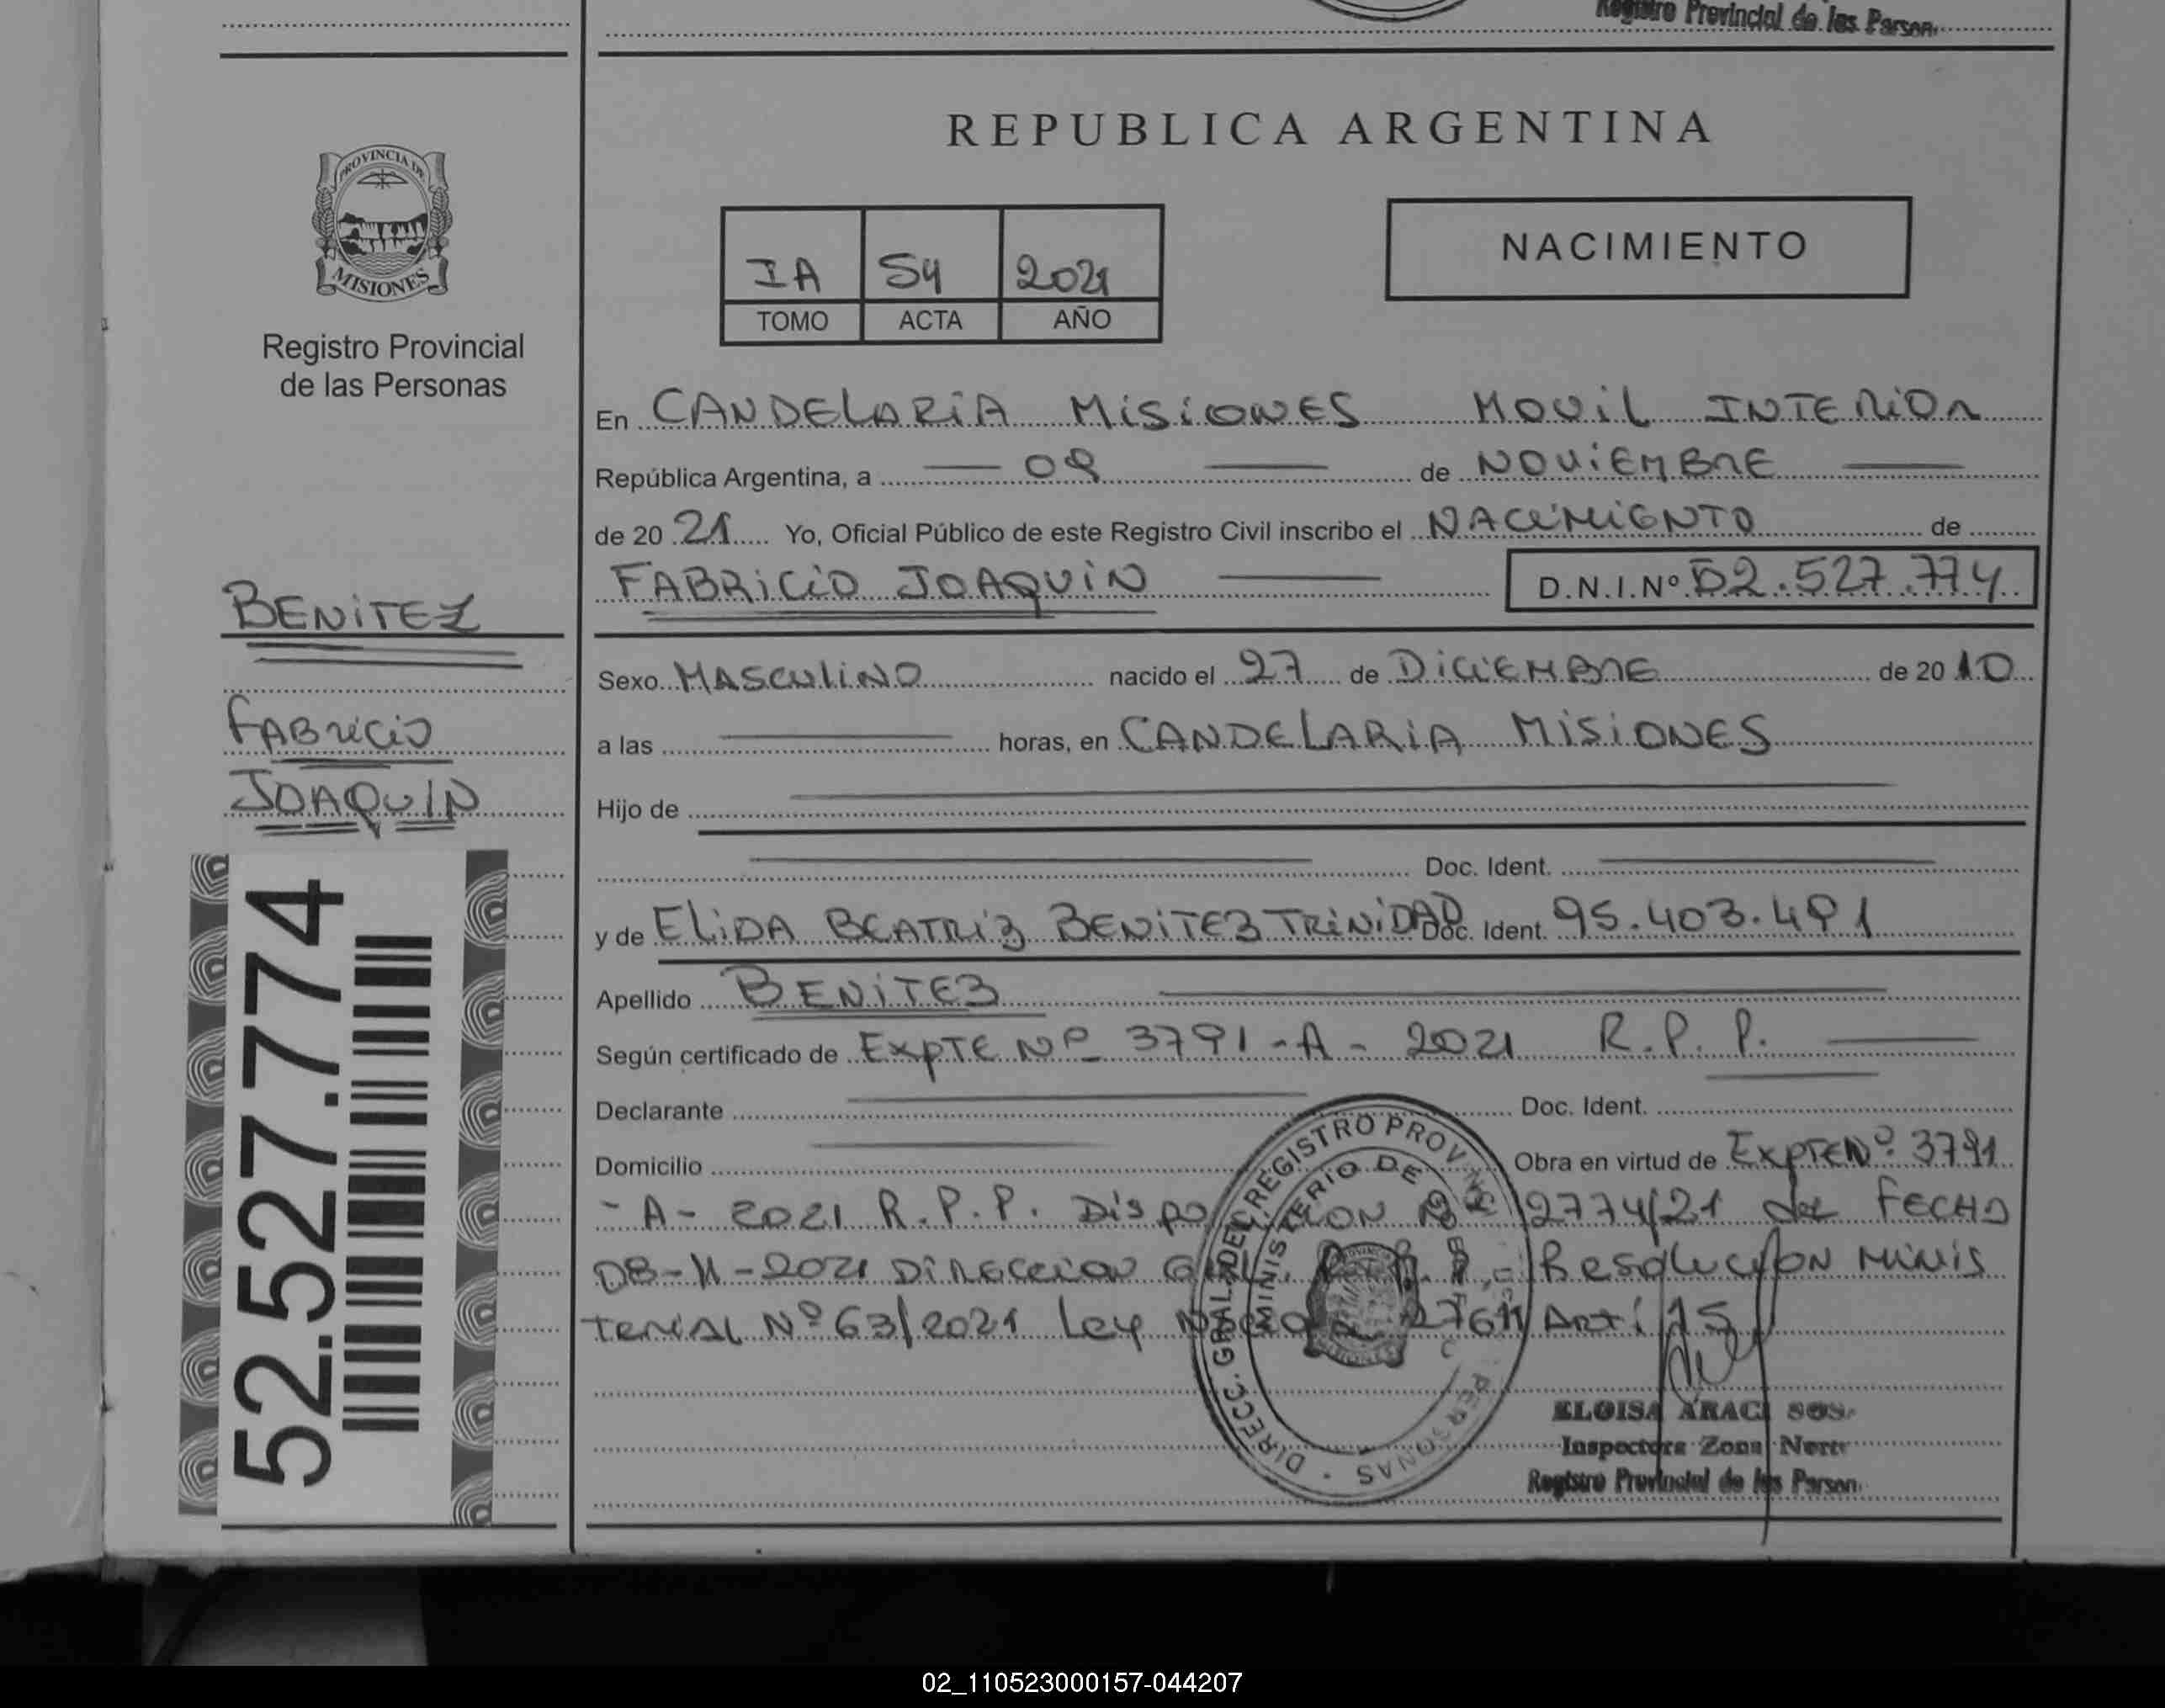 Registro Provincial de las Person.
REPUBLICA ARGENTINA
PROVINCIA DE
MISIONES
Registro Provincial
de las Personas
IA 54 2021
TOMO ACTA AÑO
NACIMIENTO
En CANDELARIA MISIONES MOVIL INTERIOR
República Argentina, a 09 de NOVIEMBRE
de 20 21 Yo, Oficial Público de este Registro Civil inscribo el NACIMIENTO de
FABRICIO JOAQUIN D.N.I.Nº 52.527.774
BENITEZ
FABRICIO
JOAQUIN
52.527.774
Sexo MASCULINO nacido el 27 de DICIEMBRE de 20 10
a las horas, en CANDELARIA MISIONES
Hijo de
Doc. Ident.
y de ELIDA BEATRIZ BENITEZ TRINIDAD Doc. Ident. 95.403.491
Apellido BENITEZ
Según certificado de EXPTE Nº 3791-A-2021 R.P.P.
Declarante Doc. Ident.
Domicilio Obra en virtud de EXPTE Nº 3791
-A-2021 R.P.P. DISPOSICION Nº 2774/21 de FECHA
08-11-2021 DIRECCION GRAL. R.P.P.- RESOLUCION MINIS
TERIAL Nº 63/2021 Ley 27611 Art. 15
DIRECC. GRAL. DEL REGISTRO PROVINC. PERSONAS
MINISTERIO DE
MISIONES
ELOISA ARACI SOS
Inspectora Zona Norte
Registro Provincial de las Person.
02_110523000157-044207